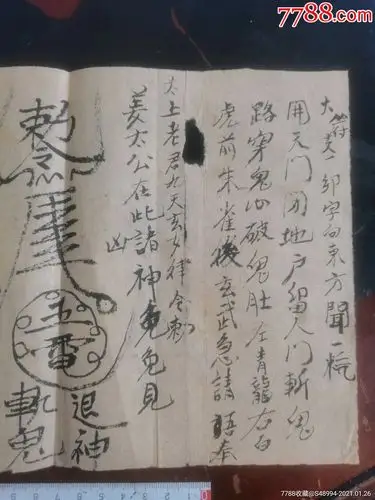 7788.com
大符 印字向東方聞一炁
開天門閉地戶留人門斬鬼
路穿鬼心破鬼肚左青龍右白
虎前朱雀後玄武急請 奉
太上老君九天玄女律令勅
姜太公在此諸神兔見
凶
勅
五雷
退神
斬鬼
7788收藏@S48994-2021.01.26